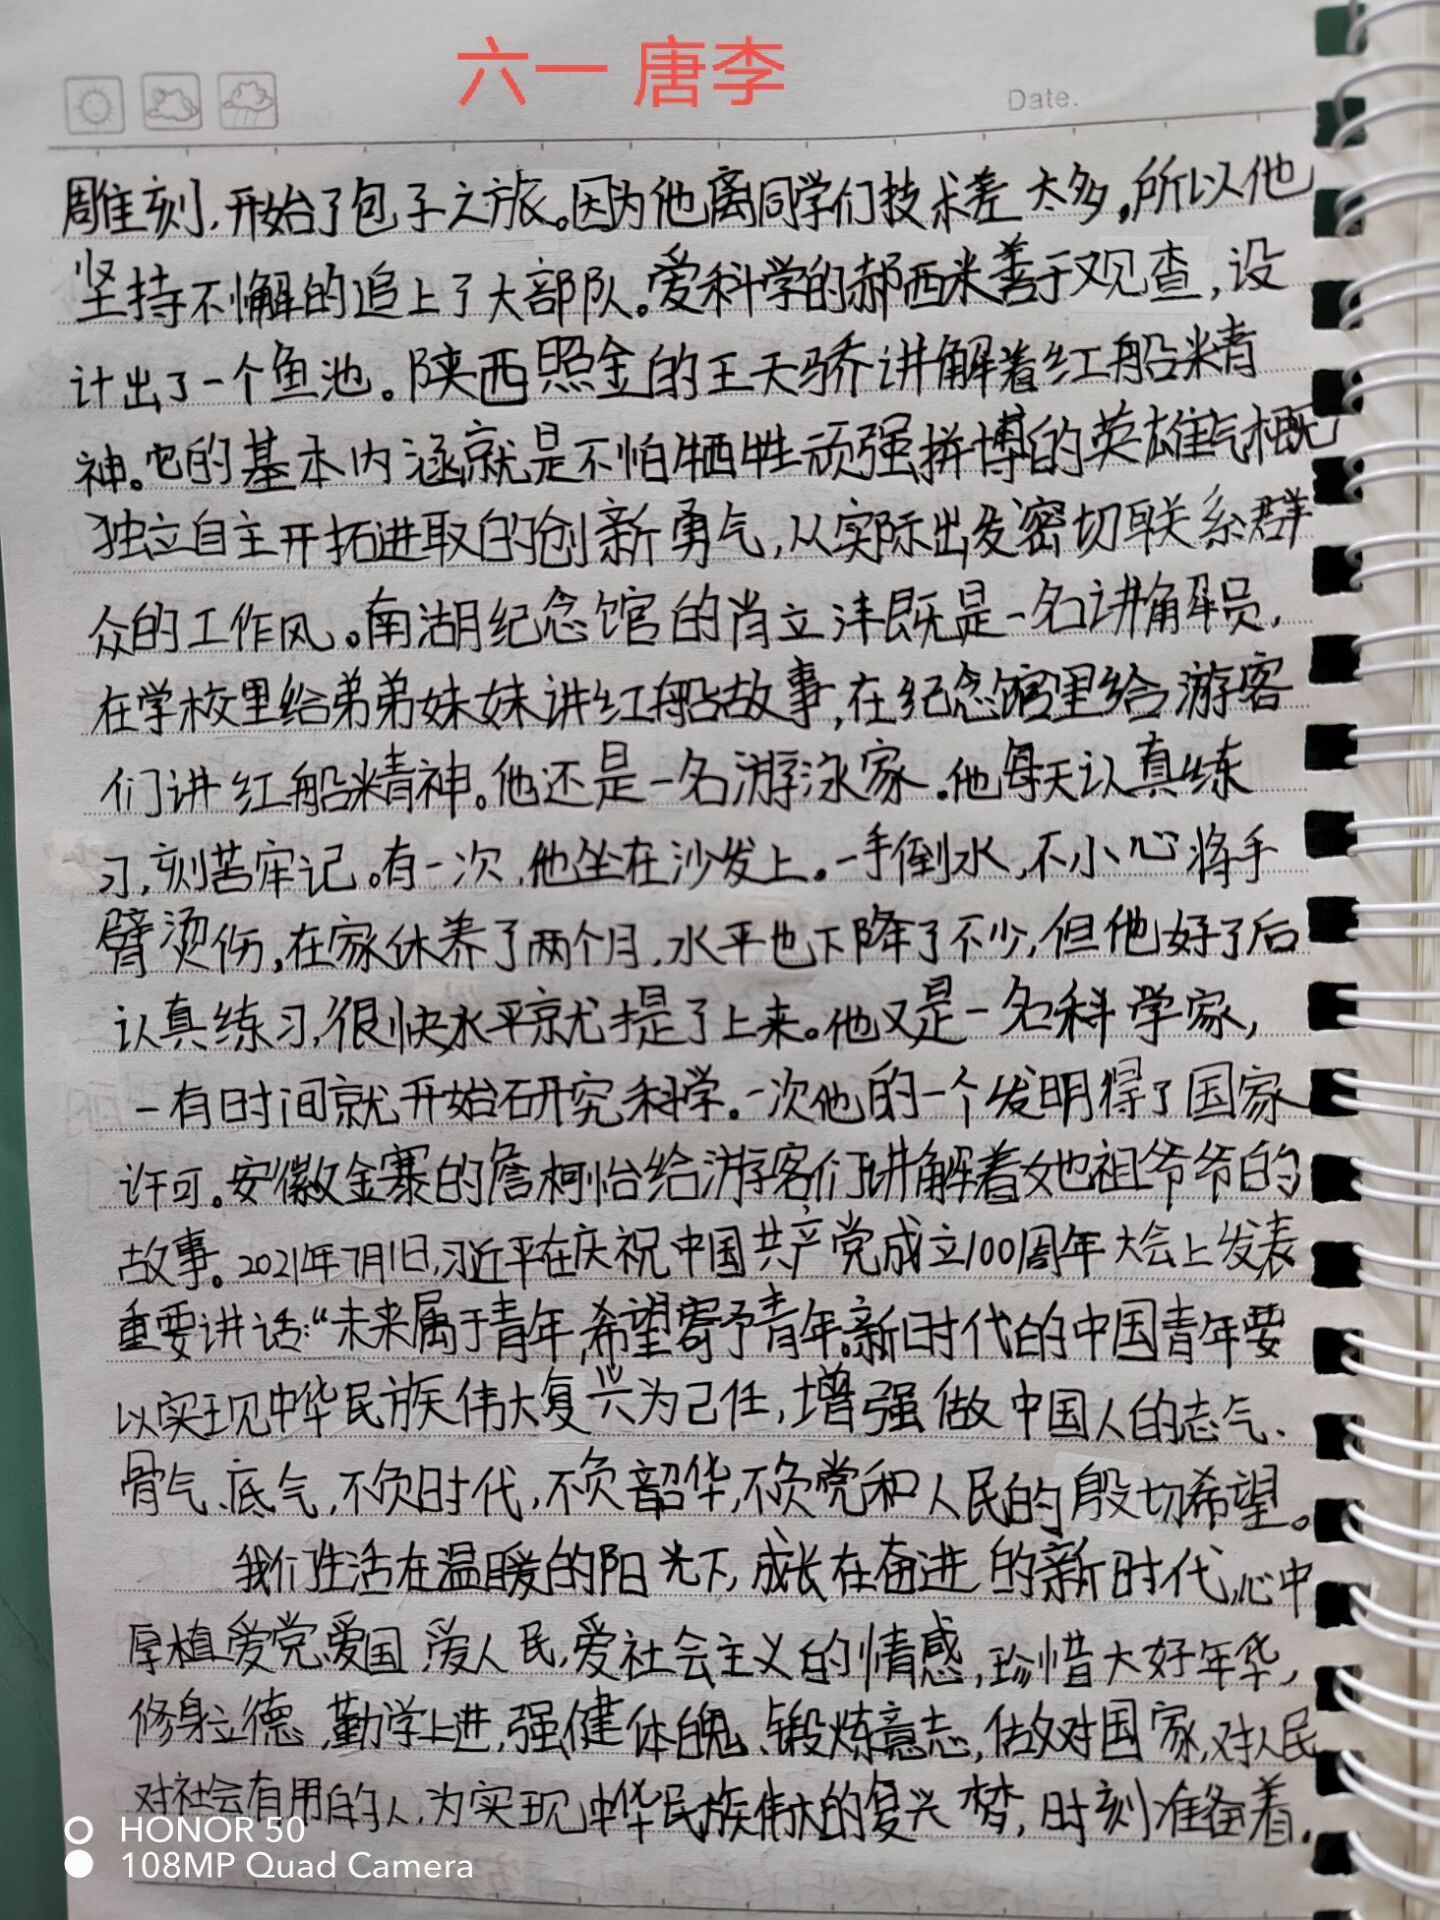 六一 唐李
Date.
雕刻,开始了包子之旅。因为他离同学们技术差太多,所以他
坚持不懈的追上了大部队。爱科学的郝西米善于观查,设
计出了一个鱼池。陕西照金的王天骄讲解着红船精
神。它的基本内涵就是不怕牺牲顽强拼博的英雄气概
独立自主开拓进取的创新勇气,从实际出发密切联系群
众的工作风。南湖纪念馆的肖立沣既是一名讲解员,
在学校里给弟弟妹妹讲红船故事,在纪念馆里给游客
们讲红船精神。他还是一名游泳家.他每天认真练
习,刻苦牢记。有一次,他坐在沙发上。一手倒水,不小心将手
臂烫伤,在家休养了两个月,水平也下降了不少,但他好了后
认真练习,很快水平就提了上来。他又是一名科学家,
一有时间就开始研究科学。一次他的一个发明得了国家
许可。安徽金寨的詹柯怡给游客们讲解着她祖爷爷的
故事。2021年7月1日,习近平在庆祝中国共产党成立100周年大会上发表
重要讲话:“未来属于青年,希望寄予青年。新时代的中国青年要
以实现中华民族伟大复兴为己任,增强做中国人的志气、
骨气、底气,不负时代,不负韶华,不负党和人民的殷切希望。
我们生活在温暖的阳光下,成长在奋进的新时代,心中
厚植爱党、爱国、爱人民,爱社会主义的情感,珍惜大好年华,
修身立德、勤学上进,强健体魄、锻炼意志,做对国家,对人民
对社会有用的人,为实现中华民族伟大的复兴梦,时刻准备着.
HONOR 50
108MP Quad Camera